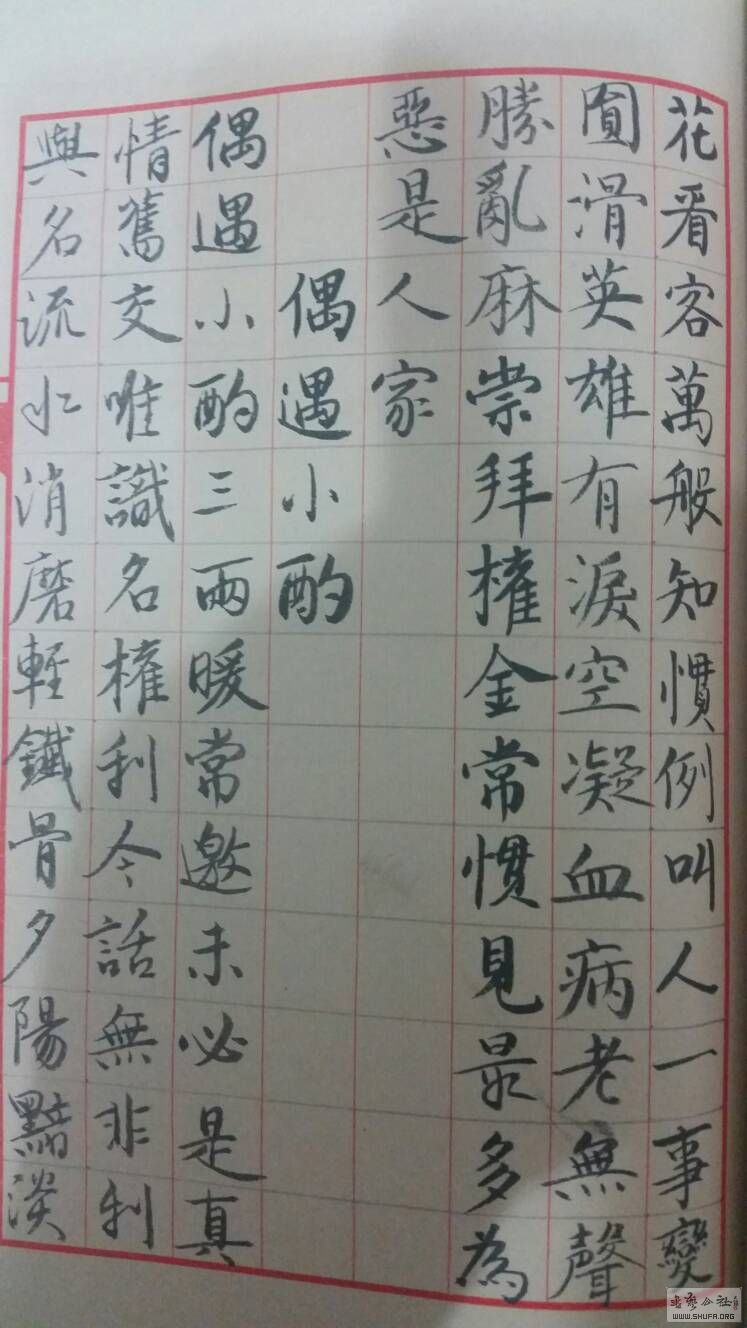 花看客萬般知慣例叫人一事變
圓滑英雄有淚空凝血病老無聲
勝亂麻崇拜權金常慣見最多為
惡是人家
偶遇小酌
偶遇小酌三兩暖常邀未必是真
情舊交唯識名權利今話無非利
與名流水消磨輕鐵骨夕陽黯淡
书艺公社
WWW.SHUFA.ORG